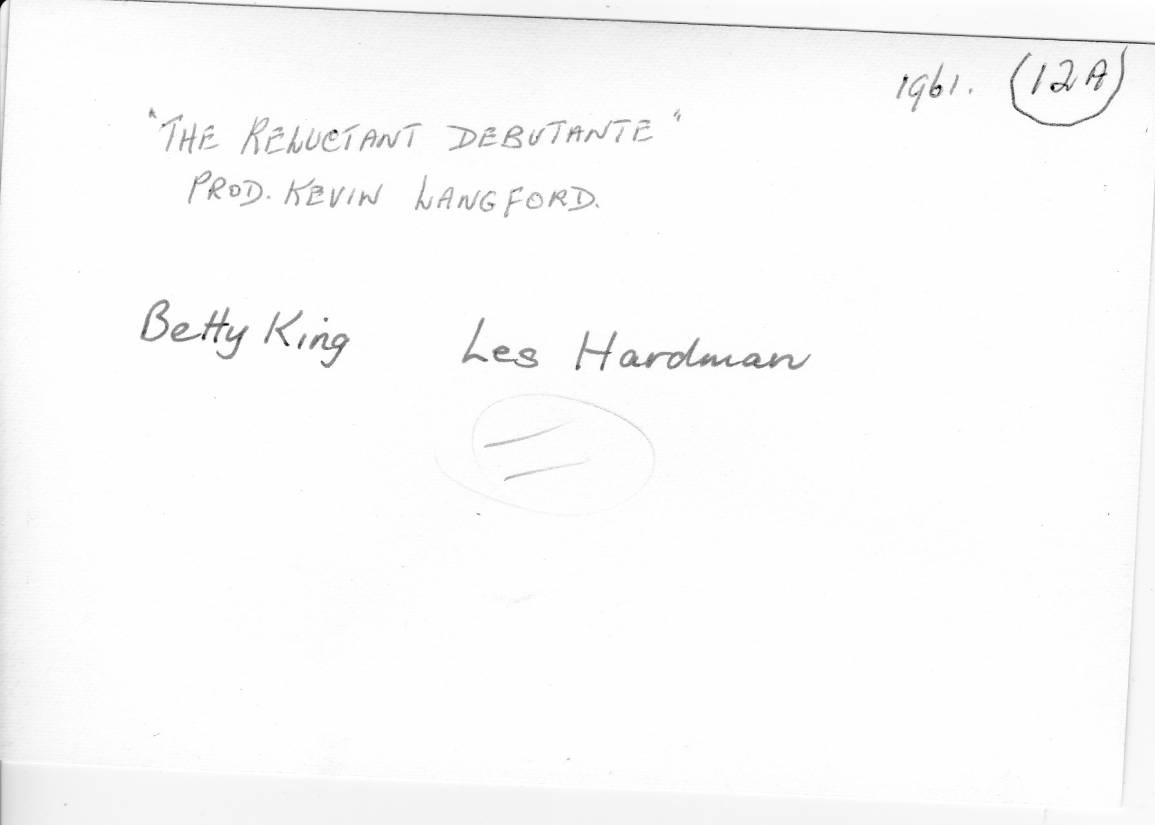 1961. 12A
"THE RELUCTANT DEBUTANTE"
PROD. KEVIN LANGFORD.
Betty King Les Hardman